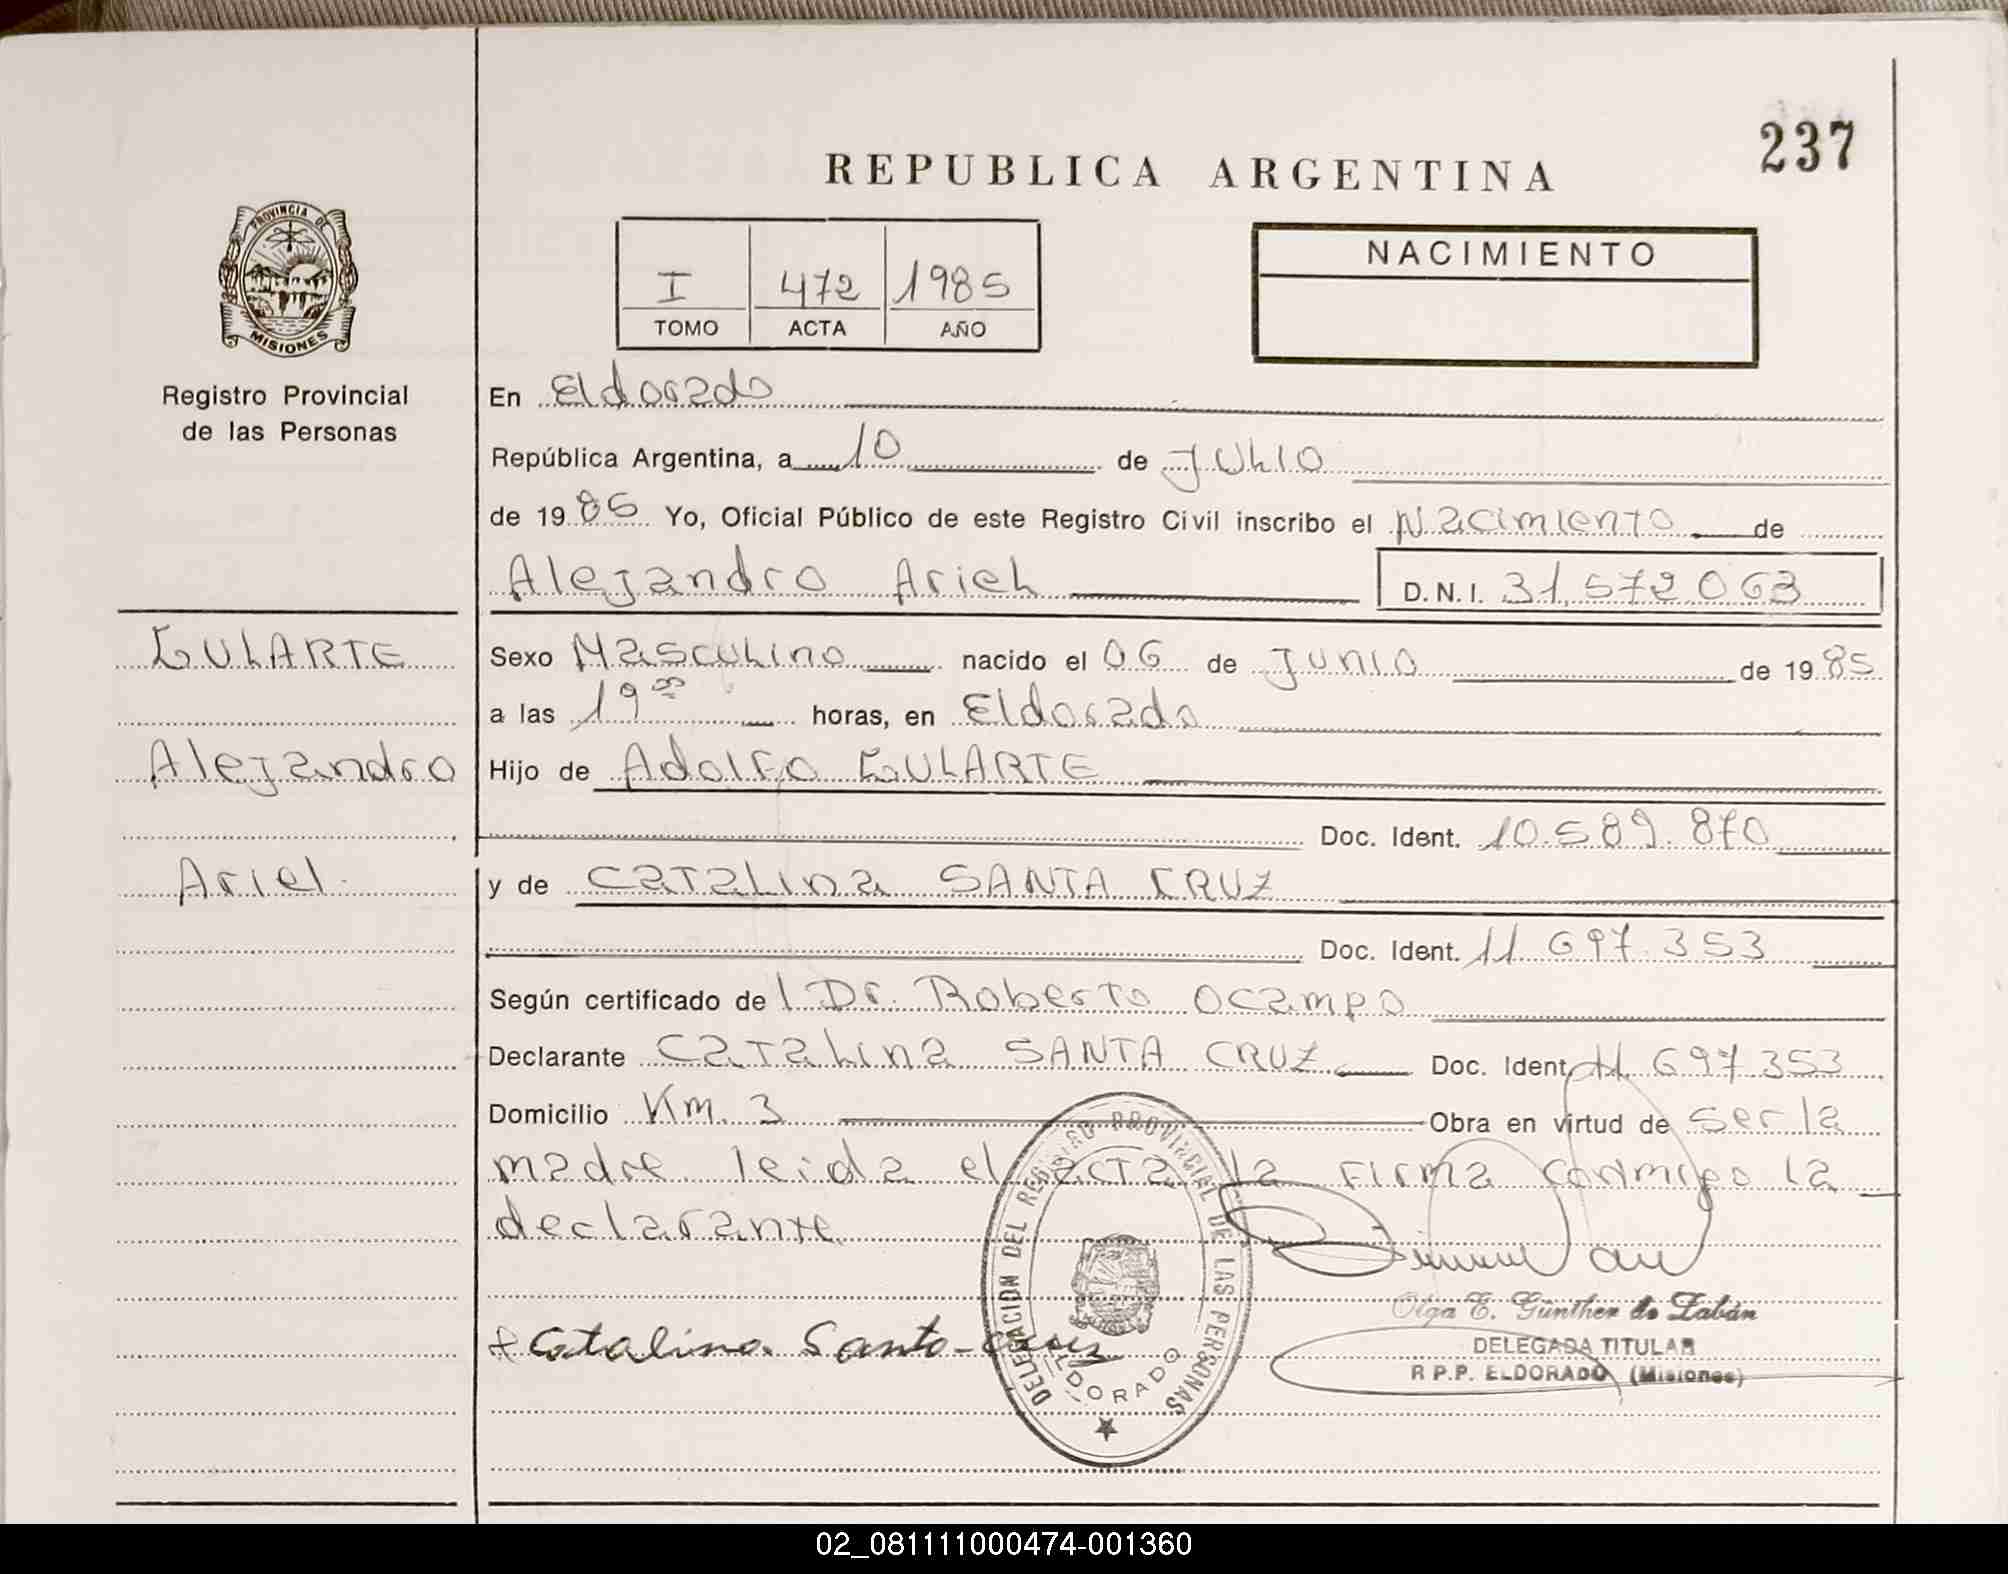 237
REPUBLICA ARGENTINA
PROVINCIA DE
MISIONES
Registro Provincial
de las Personas
I 472 1985
TOMO ACTA AÑO
NACIMIENTO
En Eldorado
República Argentina, a 10 de Julio
de 1985 Yo, Oficial Público de este Registro Civil inscribo el Nacimiento de
Alejandro Ariel D.N.I. 31.572.063
GULARTE
Alejandro
Ariel.
Sexo Masculino nacido el 06 de Junio de 1985
a las 19 00 horas, en Eldorado
Hijo de Adolfo GULARTE
Doc. Ident. 10.589.870
y de Catalina SANTA CRUZ
Doc. Ident. 11.697.353
Según certificado de l Dr. Roberto Ocampo
Declarante Catalina SANTA CRUZ Doc. Ident. 11.697.353
Domicilio Km. 3 Obra en virtud de ser la
madre leida el acta la firma conmigo la
declarante.
DELEGACION DEL REGISTRO PROVINCIAL DE LAS PERSONAS
ELDORADO
Catalina Santa-Cruz
Olga E. Günther de Zabán
DELEGADA TITULAR
R P.P. ELDORADO (Misiones)
02_081111000474-001360